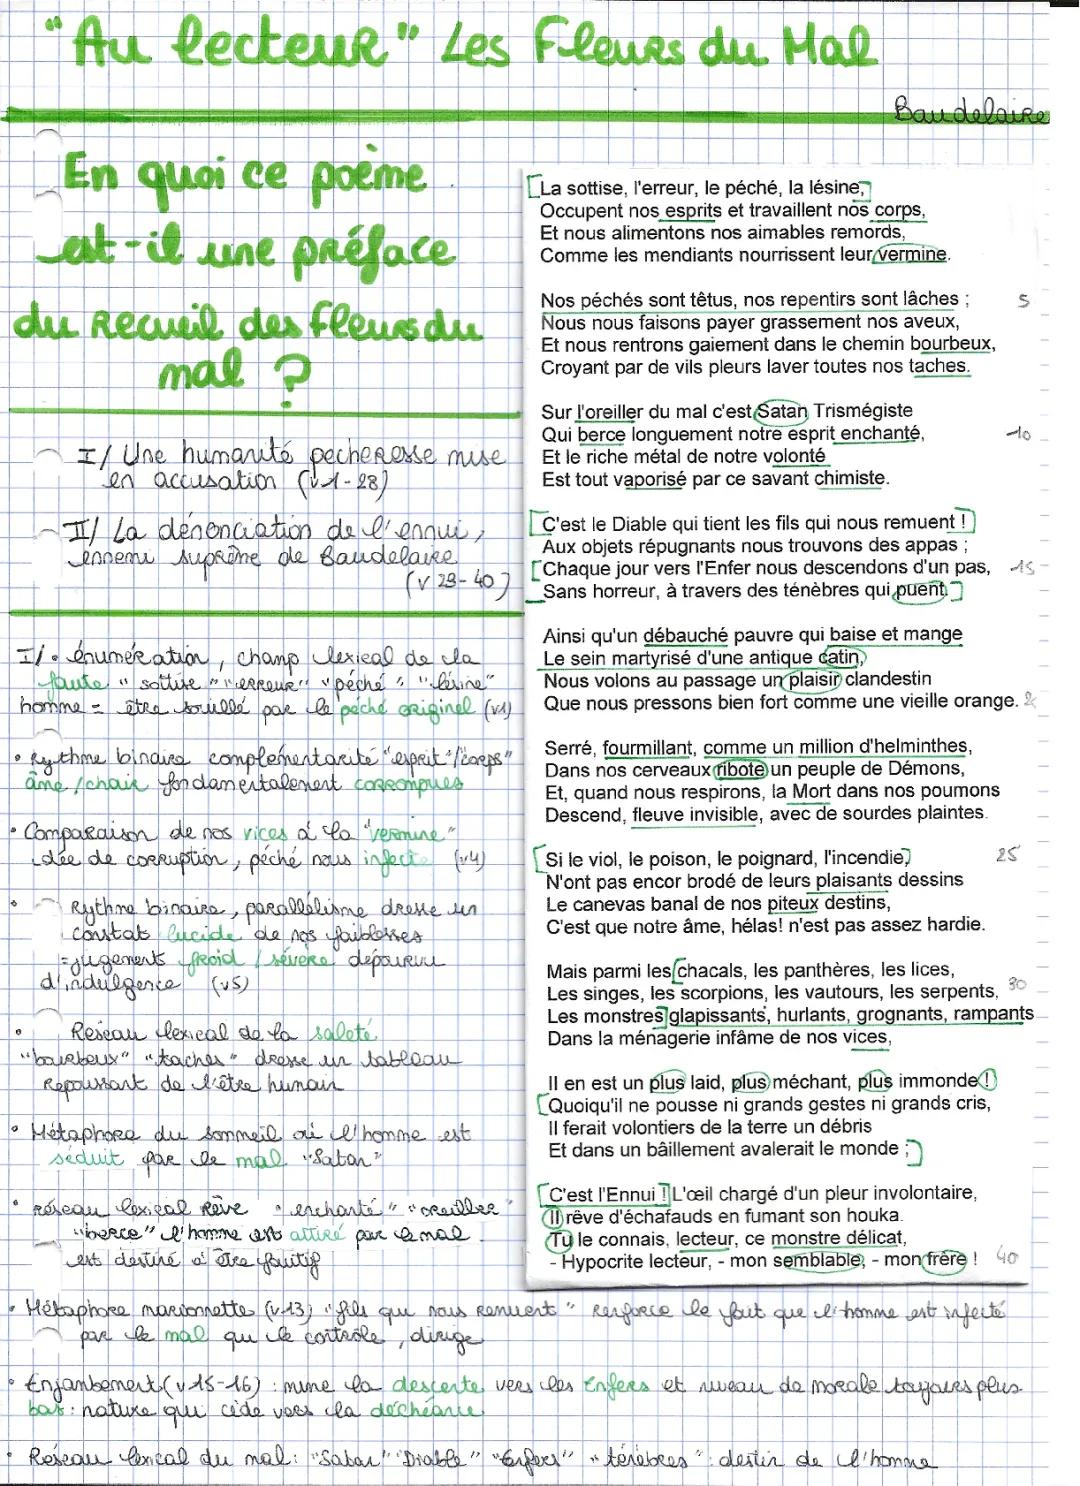 "Au lecteur" Les Fleurs du Mal
Baudelaire
En quoi ce poème
est-il une préface
du recueil des fleurs du
mal ?
I/ Une humanité pecheresse mise
en accusation (v 1-28)
II/ La dénonciation de l'ennui,
ennemi suprême de Baudelaire
(v 29-40)
La sottise, l'erreur, le péché, la lésine,
Occupent nos esprits et travaillent nos corps,
Et nous alimentons nos aimables remords,
Comme les mendiants nourrissent leur vermine.
Nos péchés sont têtus, nos repentirs sont lâches ; 5
Nous nous faisons payer grassement nos aveux,
Et nous rentrons gaiement dans le chemin bourbeux,
Croyant par de vils pleurs laver toutes nos taches.
Sur l'oreiller du mal c'est Satan Trismégiste
Qui berce longuement notre esprit enchanté, 10
Et le riche métal de notre volonté
Est tout vaporisé par ce savant chimiste.
C'est le Diable qui tient les fils qui nous remuent !
Aux objets répugnants nous trouvons des appas ;
Chaque jour vers l'Enfer nous descendons d'un pas, 15
Sans horreur, à travers des ténèbres qui puent.
Ainsi qu'un débauché pauvre qui baise et mange
Le sein martyrisé d'une antique catin,
Nous volons au passage un plaisir clandestin
Que nous pressons bien fort comme une vieille orange.
Serré, fourmillant, comme un million d'helminthes,
Dans nos cerveaux ribote un peuple de Démons,
Et, quand nous respirons, la Mort dans nos poumons
Descend, fleuve invisible, avec de sourdes plaintes.
Si le viol, le poison, le poignard, l'incendie, 25
N'ont pas encor brodé de leurs plaisants dessins
Le canevas banal de nos piteux destins,
C'est que notre âme, hélas! n'est pas assez hardie.
Mais parmi les chacals, les panthères, les lices,
Les singes, les scorpions, les vautours, les serpents, 30
Les monstres glapissants, hurlants, grognants, rampants
Dans la ménagerie infâme de nos vices,
Il en est un plus laid, plus méchant, plus immonde !
Quoiqu'il ne pousse ni grands gestes ni grands cris,
Il ferait volontiers de la terre un débris
Et dans un bâillement avalerait le monde ;
C'est l'Ennui ! L'œil chargé d'un pleur involontaire,
Il rêve d'échafauds en fumant son houka.
Tu le connais, lecteur, ce monstre délicat,
- Hypocrite lecteur, - mon semblable, - mon frère ! 40
I/ • énumération, champ lexical de la
faute "sottise" "erreur" "péché" "lésine"
homme = être souillé par le péché originel (v1)
• Rythme binaire complémentarité "esprit"/"corps"
âme / chair fondamentalement corrompues
• Comparaison de nos vices à la "vermine"
idée de corruption, péché nous infecte (v4)
• Rythme binaire, parallélisme dresse un
constat lucide de nos faiblesses
= jugements froid / sévère dépourvu
d'indulgence (v5)
• Réseau lexical de la saleté
"bourbeux" "taches" dresse un tableau
repoussant de l'être humain
• Métaphore du sommeil où l'homme est
séduit par le mal "Satan"
• réseau lexical rêve "enchanté" "oreiller"
"berce" l'homme est attiré par le mal
est destiné à être fautif
• Métaphore marionnette (v 13) "fils qui nous remuent" renforce le fait que l'homme est infecté
par le mal qui le contrôle, dirige
• Enjambement (v 15-16) : mime la descente vers les Enfers et niveau de morale toujours plus
bas : nature qui cède vers la déchéance
• Réseau lexical du mal : "Satan" "Diable" "Enfers" "ténèbres" : destin de l'homme